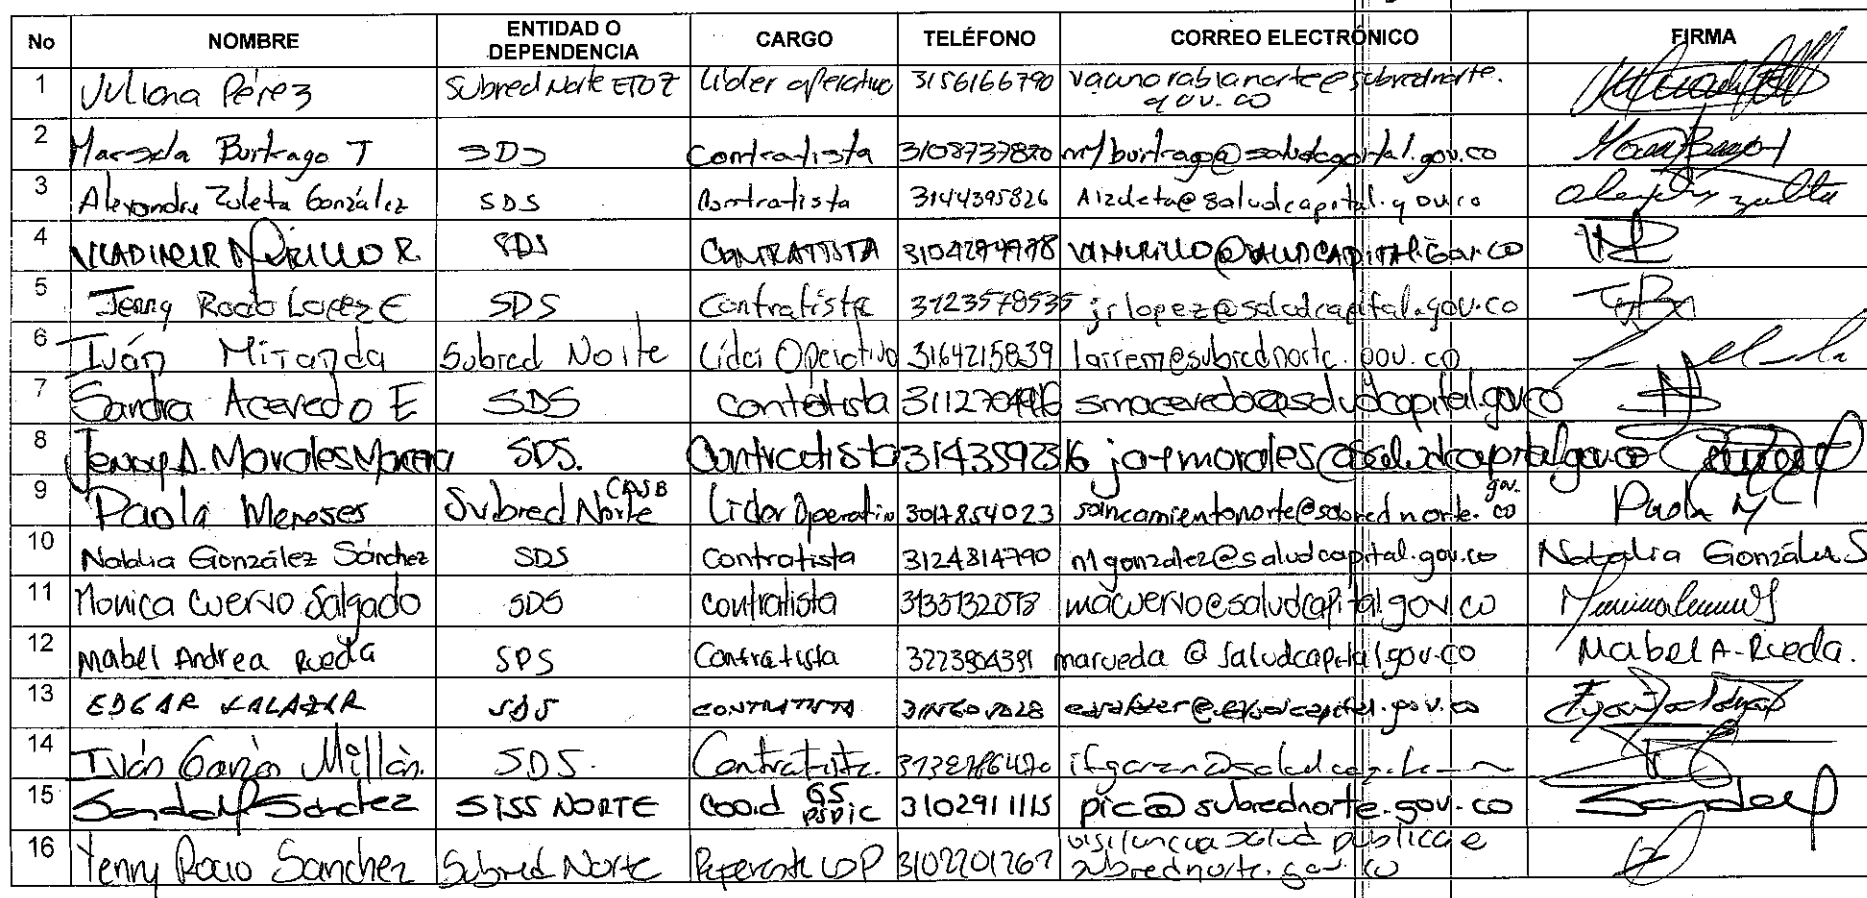 No NOMBRE ENTIDAD O DEPENDENCIA CARGO TELÉFONO CORREO ELECTRÓNICO FIRMA
1 Juliana Pérez Subred Norte Líder operativo 3156166790 vacunorabianorte@subrednorte.gov.co
2 Marcela Buitrago T SDS Contratista 3108737820 buitrago@saludcapital.gov.co
3 Alexandra Zuleta González SDS Contratista 3144395826 Azuleta@saludcapital.gov.co
4 VLADIMIR MURILLO R. SDS CONTRATISTA VAMURILLO@SALUDCAPITAL.GOV.CO
5 Jenny Rocio Lopez E SDS Contratista 3123578535 jrlopez@saludcapital.gov.co
6 Iván Miranda Subred Norte Líder Operativo 3164215839 @subrednorte.gov.co
7 Sandra Acevedo E SDS Contratista smacevedo@saludcapital.gov.co
8 Jenny A. Morales Moreno SDS. Contratista 3143592316 @saludcapital.gov.co
9 Paola Meneses Subred Norte Lider Operativo 3017854023 saneamientonorte@subrednorte.gov.co Paola M
10 Natalia González Sánchez SDS Contratista 3124814790 ngonzalez@saludcapital.gov.co Natalia González S
11 Monica Cuervo Salgado SDS Contratista 3133132078 macuervo@saludcapital.gov.co
12 Mabel Andrea Rueda SDS Contratista 3223904391 marueda@saludcapital.gov.co Mabel A. Rueda.
13 EDGAR SALAZAR SDS CONTRATISTA
14 Iván Garzón Millán. SDS. Contratista.
15 Sanchez SISS NORTE Coord GS PSPIC 3102911115 pic@subrednorte.gov.co
16 Yenny Rocio Sanchez Subred Norte Referente 3102201767 vigilancia salud publica@subrednorte.gov.co